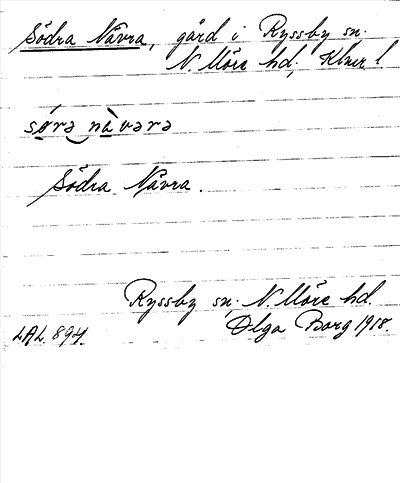 Södra Nåvra, gård i Ryssby sn.
N. Möre hd; Klmr l.
sørə nàvərə
Södra Nåvra.
Ryssby sn. N. Möre hd.
LAL. 894. Olga Borg 1918.